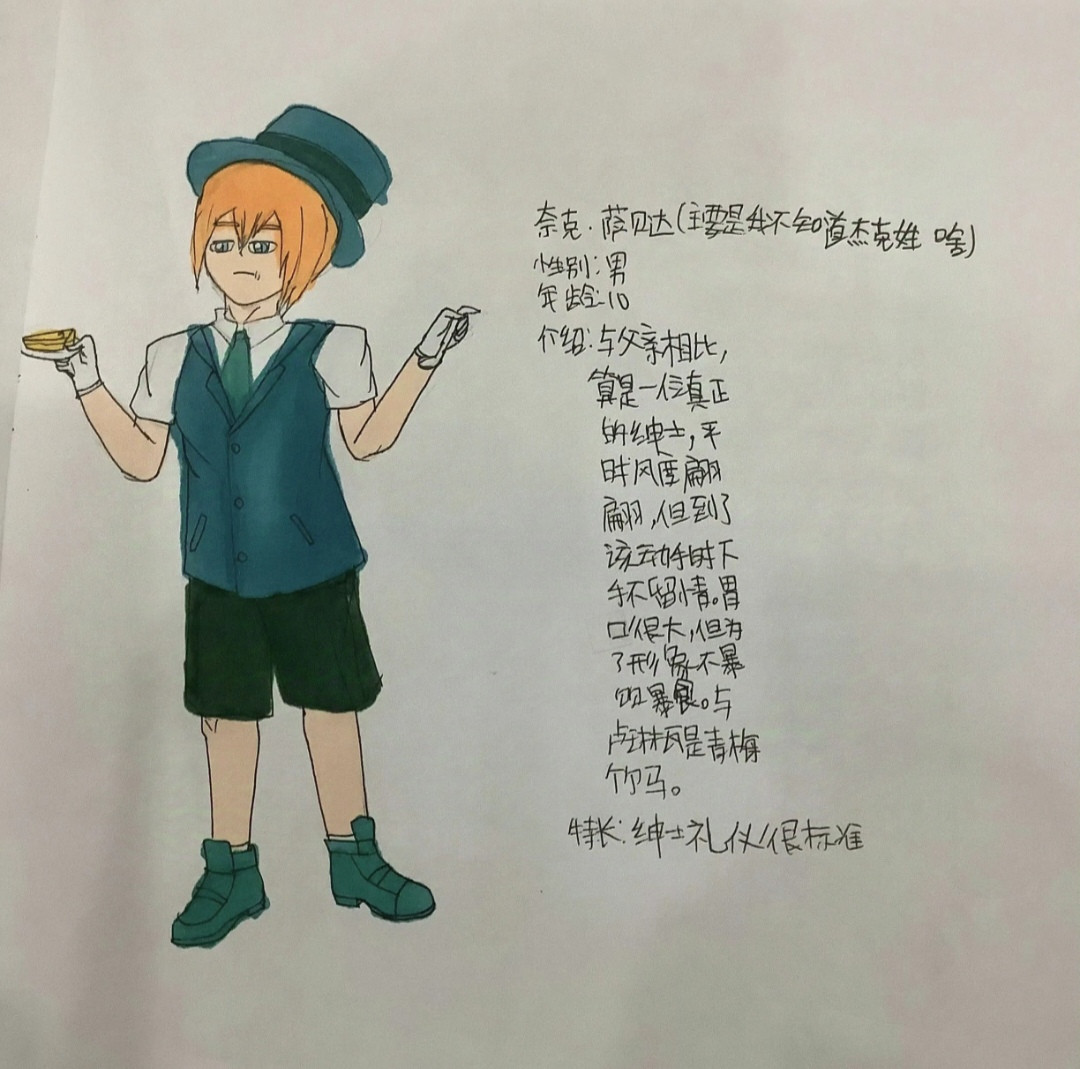 奈克·萨贝达(主要是我不知道杰克姓啥)
性别:男
年龄:10
介绍:与父亲相比,
算是一位真正
的绅士,平
时风度翩翩
翩,但到了
该动手时下
手不留情。胃
口很大,但为
了形象不暴
饮暴食。与
卢琳瓦是青梅
竹马。
特长:绅士礼仪很标准